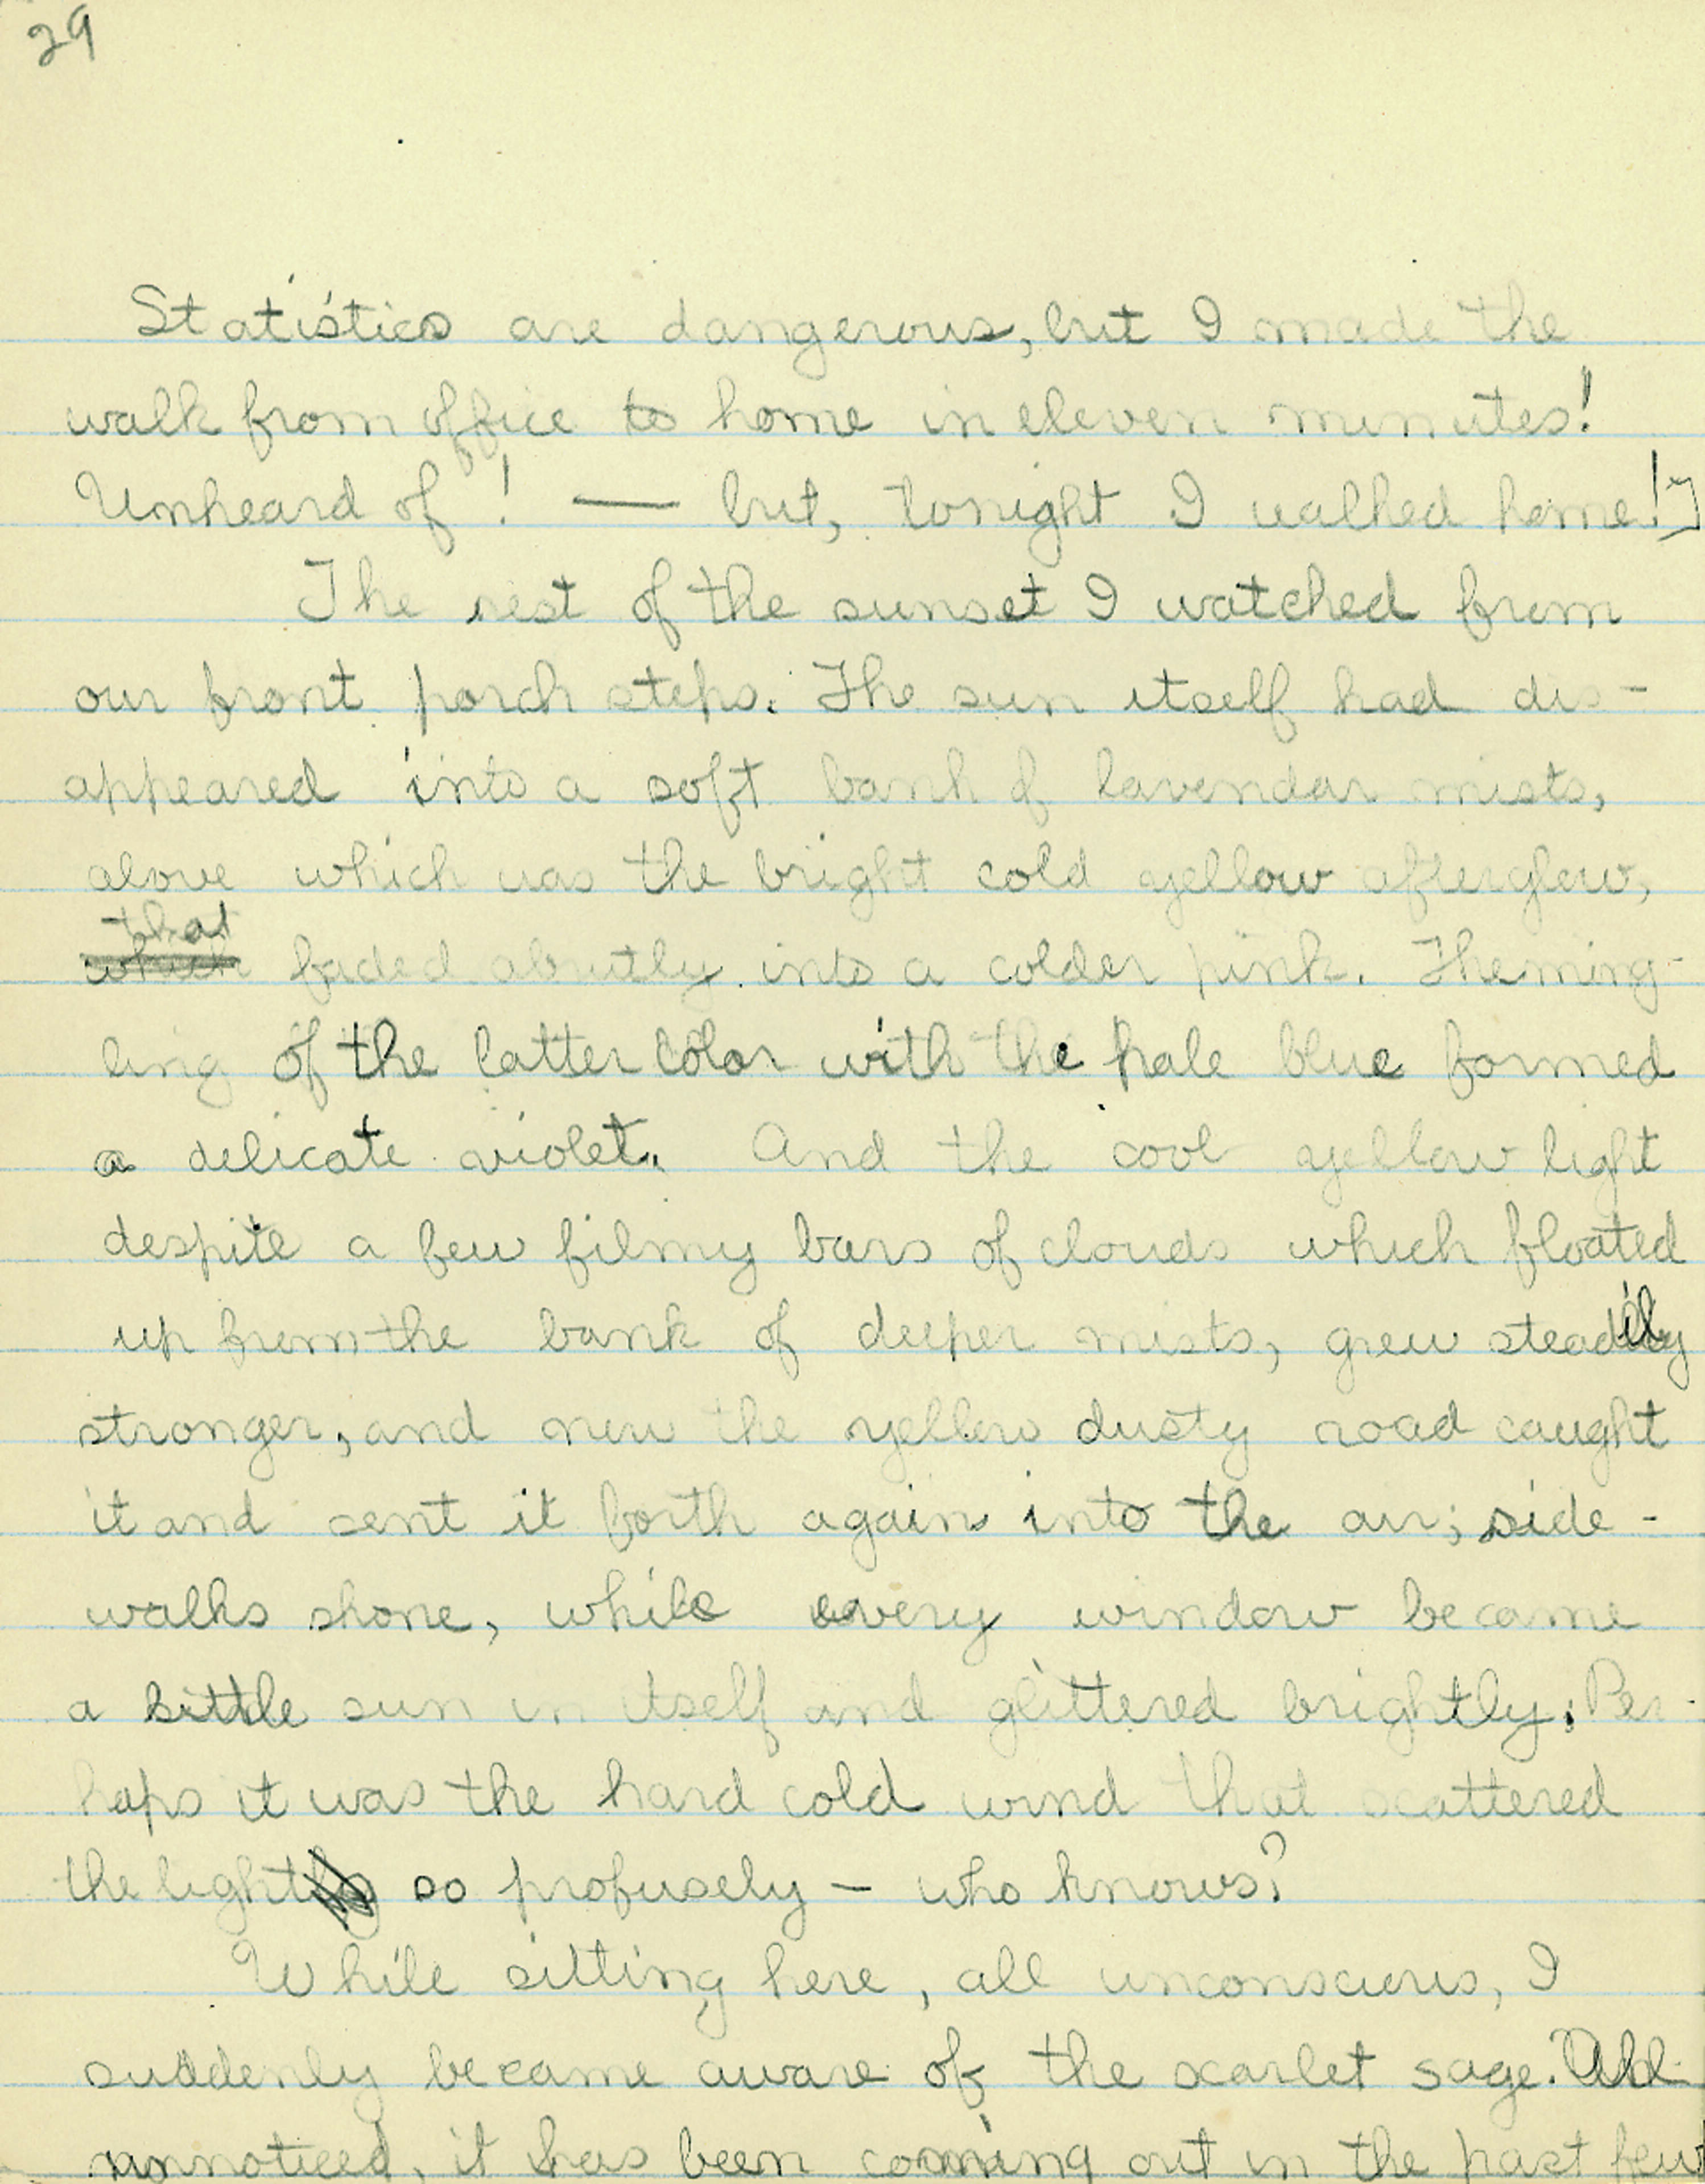 29
Statistics are dangerous, but I made the
walk from office to home in eleven minutes!
Unheard of! — but, tonight I walked home!]
The rest of the sunset I watched from
our front porch steps. The sun itself had dis-
appeared into a soft bank of lavendar mists,
above which was the bright cold yellow afterglow,
that
which faded abrutly into a colder pink. The ming-
ling of the latter color with the pale blue formed
a delicate violet. And the cool yellow light
despite a few filmy bars of clouds which floated
up from the bank of deeper mists, grew steadily
stronger, and now the yellow dusty road caught
it and sent it forth again into the air; side-
walks shone, while every window became
a little sun in itself and glittered brightly. Per-
haps it was the hard cold wind that scattered
the light so profusely — who knows?
While sitting here, all unconscious, I
suddenly became aware of the scarlet sage. All
unnoticed, it has been coming out in the past few